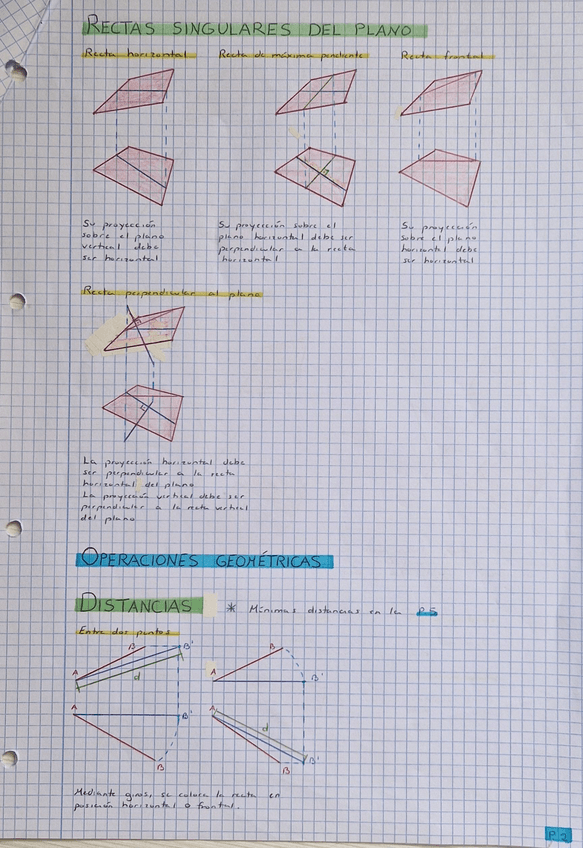 RECTAS SINGULARES DEL PLANO
Recta horizontal
Su proyección
sobre el plano
vertical debe
ser horizontal
Recta de máxima pendiente
Su proyección sobre el
plano horizontal debe ser
perpendicular a la recta
horizontal
Recta frontal
Su proyección
sobre el plano
horizontal debe
ser horizontal
Recta perpendicular al plano
La proyección horizontal debe
ser perpendicular a la recta
horizontal del plano
La proyección vertical debe ser
perpendicular a la recta vertical
del plano
OPERACIONES GEOMÉTRICAS
DISTANCIAS * Mínimas distancias en la P.5
Entre dos puntos
B B'
A
d
A B'
B
B
A B'
A
d
B'
B
Mediante giros, se coloca la recta en
posición horizontal o frontal.
P.2